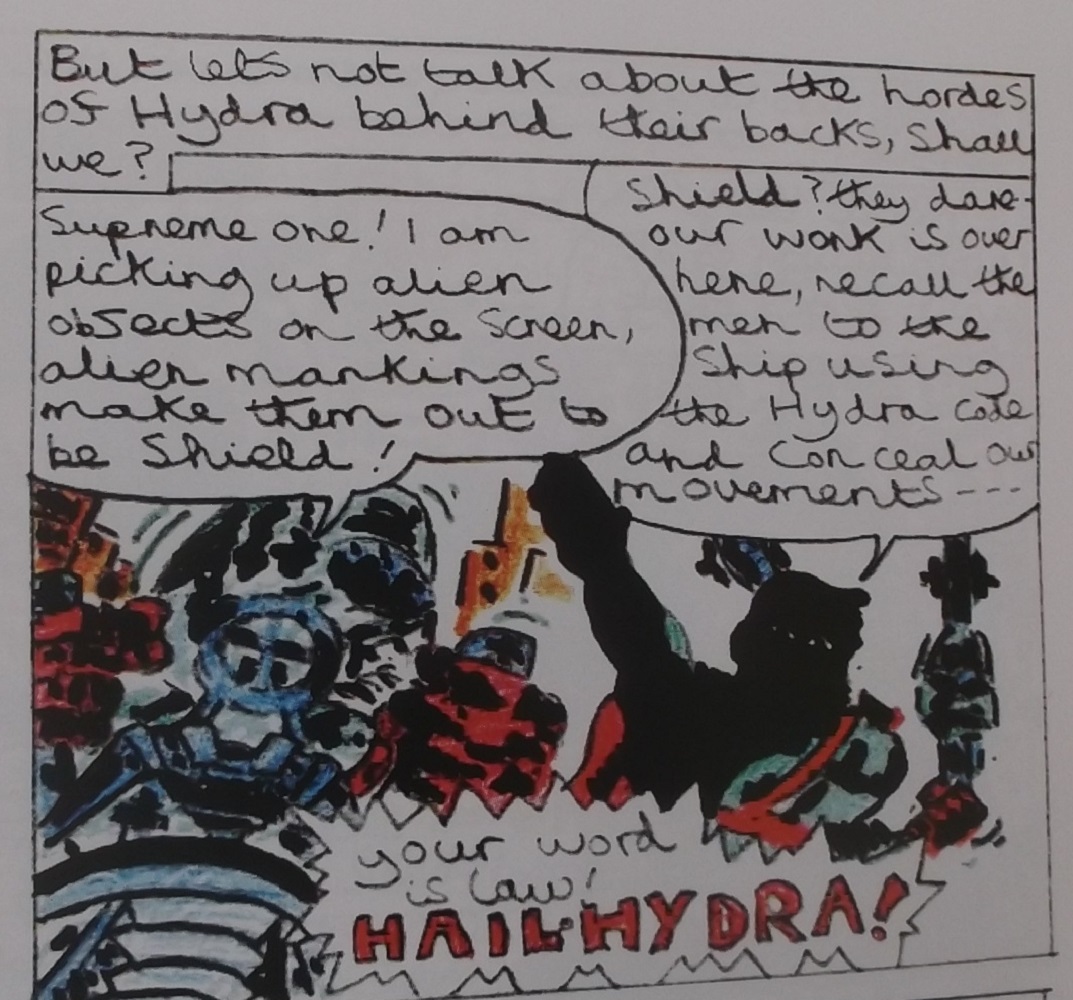 But lets not talk about the hordes
of Hydra behind their backs, Shall
we?
Supreme one! I am
picking up alien
obSects on the Screen,
alien markings
make them out to
be Shield!
Shield? they dare-
our work is over
here, recall the
men to the
Ship using
the Hydra code
and Conceal our
movements---
your word
is law!
HAIL HYDRA!